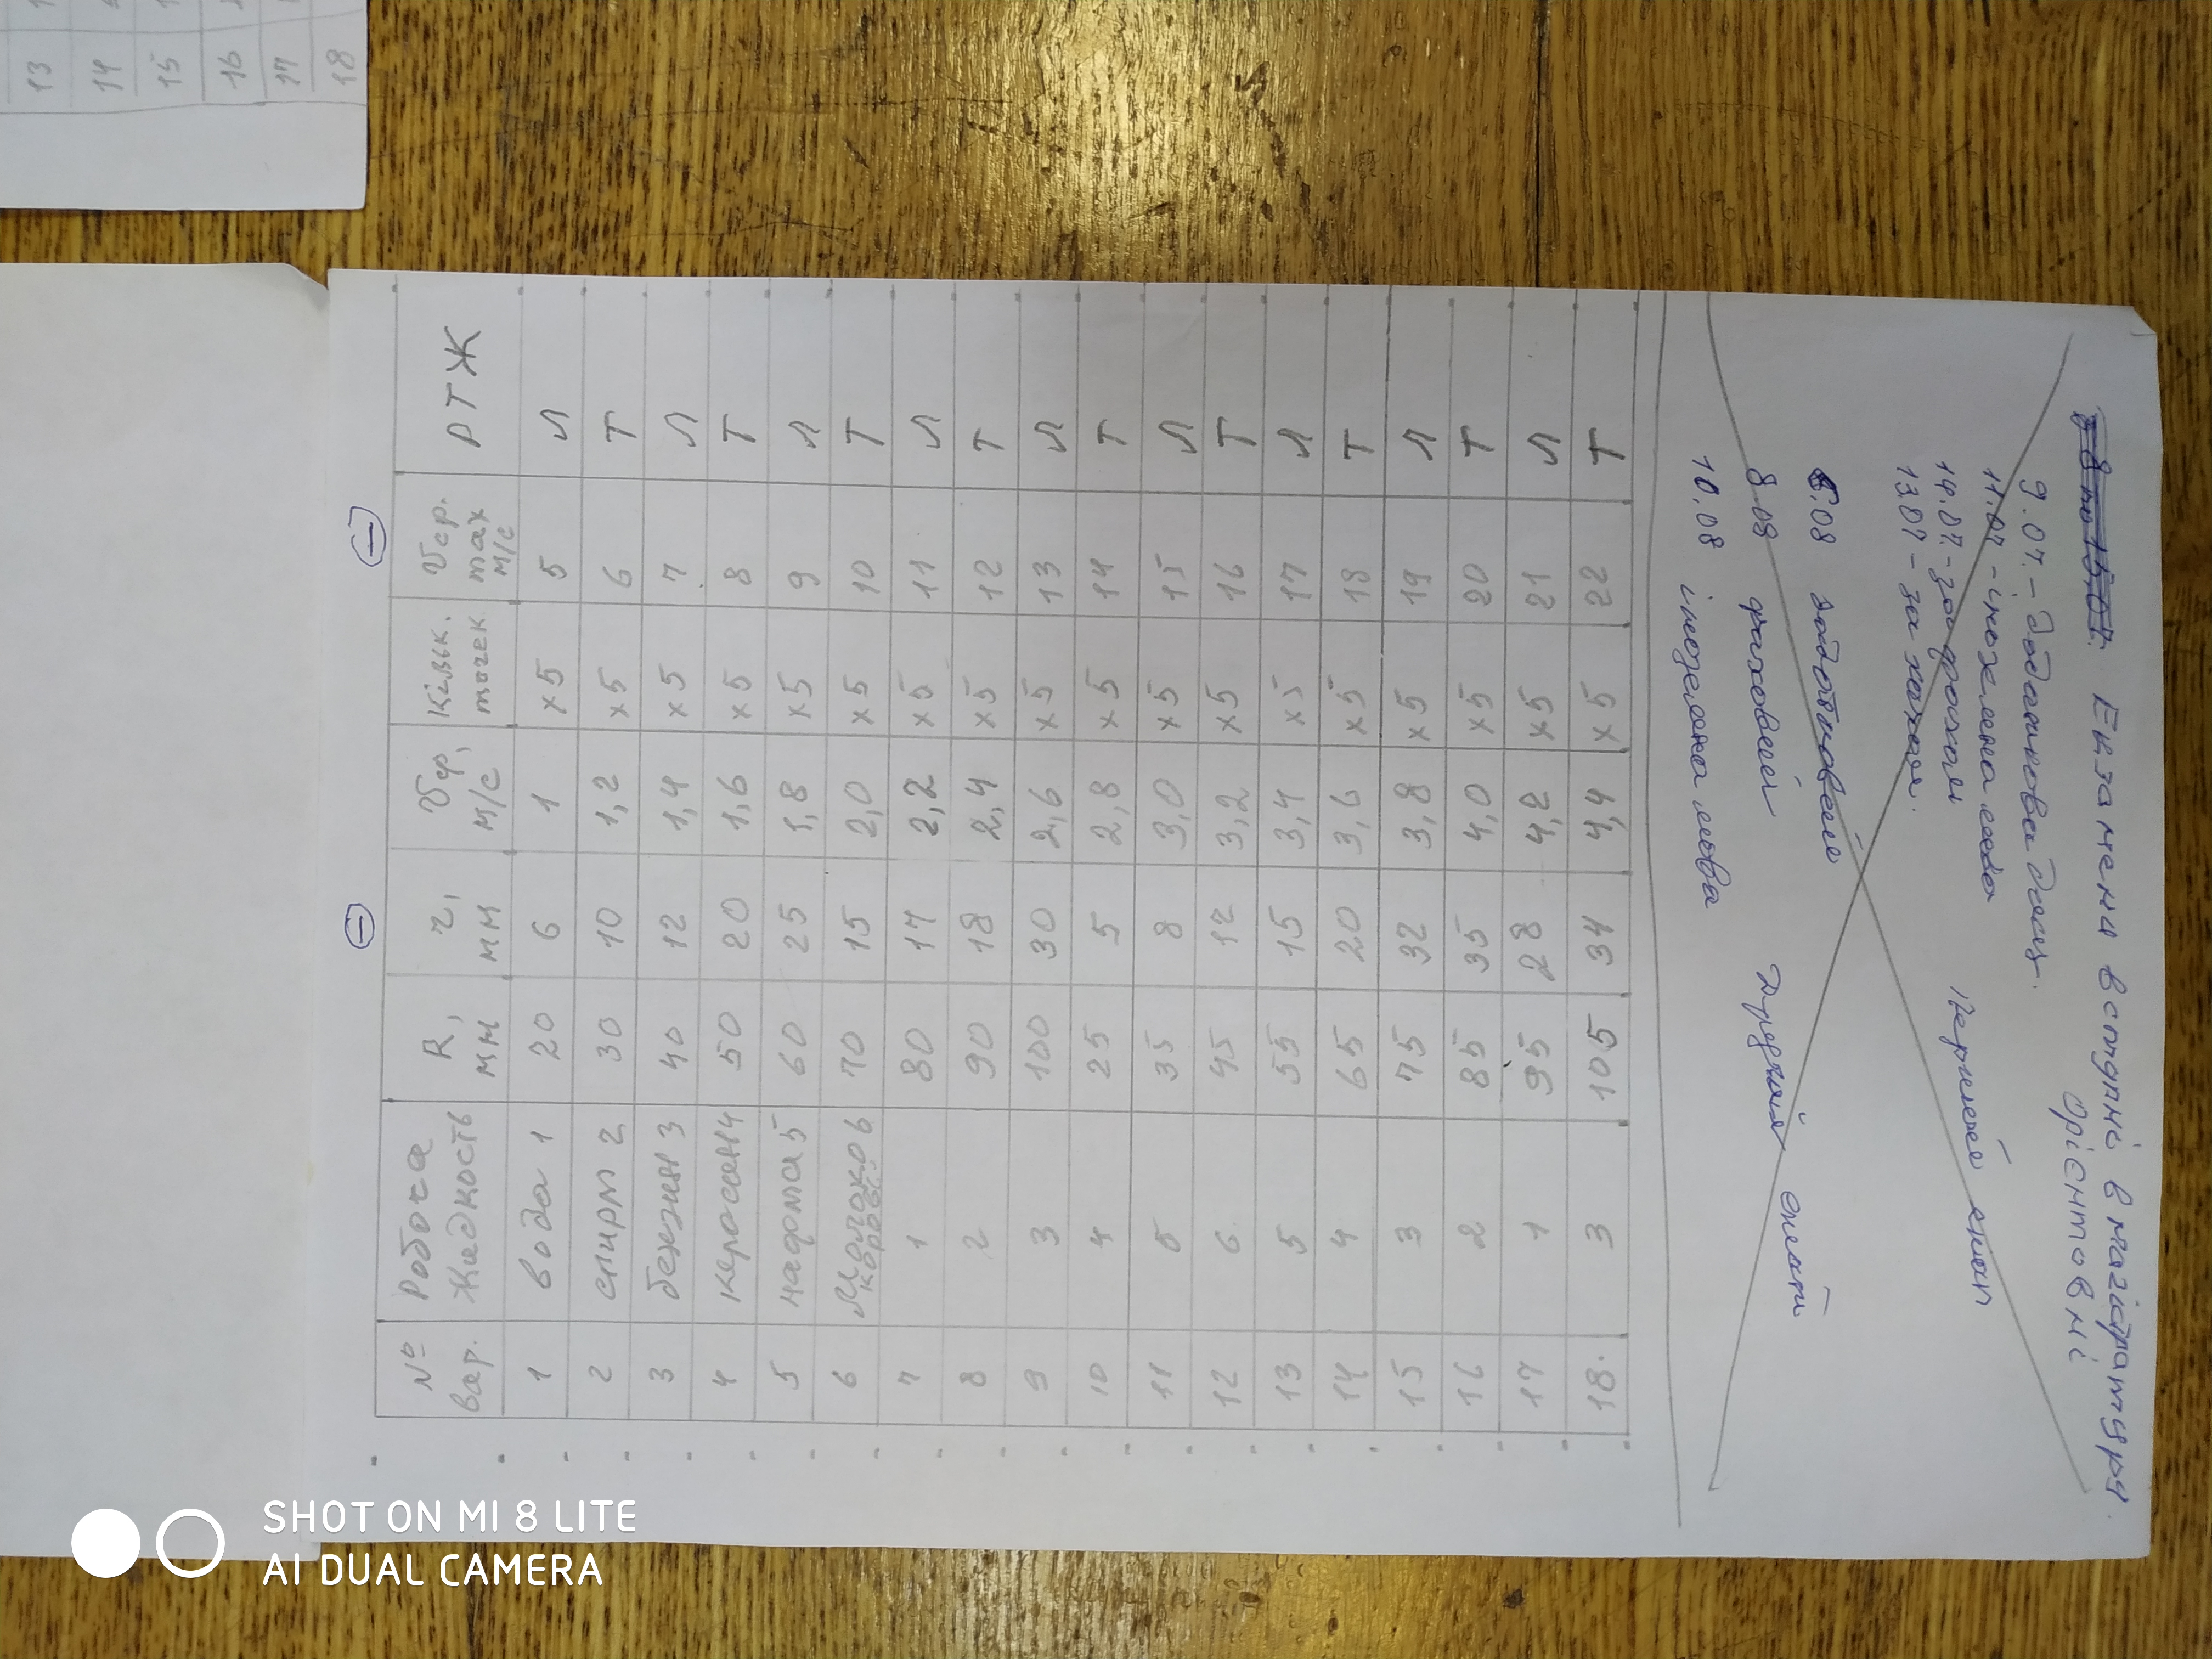 13
14
15
16
17
18
№ вар. Робоча Жидкость R, мм r, мм υср, м/с Кільк. точек υср. max м/с РТЖ
1 вода 1 20 6 1 x5 5 Л
2 спирт 2 30 10 1,2 x5 6 Т
3 бензин 3 40 12 1,4 x5 7 Л
4 керосин 4 50 20 1,6 x5 8 Т
5 нафта 5 60 25 1,8 x5 9 Л
6 Молоко коров. 6 70 15 2,0 x5 10 Т
7 1 80 17 2,2 x5 11 Л
8 2 90 18 2,4 x5 12 Т
9 3 100 30 2,6 x5 13 Л
10 4 25 5 2,8 x5 14 Т
11 5 35 8 3,0 x5 15 Л
12 6 45 12 3,2 x5 16 Т
13 5 55 15 3,4 x5 17 Л
14 4 65 20 3,6 x5 18 Т
15 3 75 32 3,8 x5 19 Л
16 2 85 35 4,0 x5 20 Т
17 1 95 28 4,2 x5 21 Л
18. 3 105 34 4,4 x5 22 Т
Екзамени вступні в магістратуру.
Орієнтовні
9.07. – додаткова
11.07 – іноземна мова
14.07. –
13.07 –
.08
8.08 фаховий
10.08 іноземна мова
SHOT ON MI 8 LITE
AI DUAL CAMERA